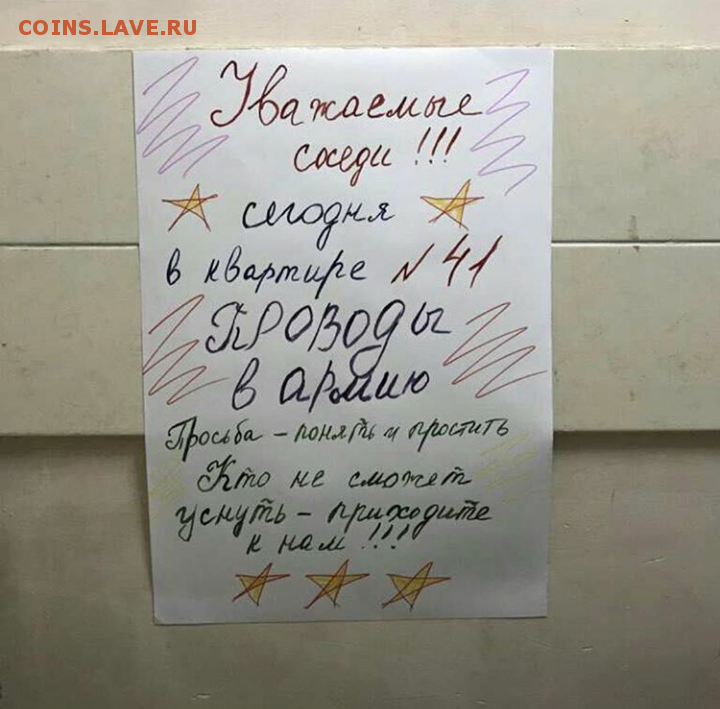 COINS.LAVE.RU
Уважаемые
соседи!!!
сегодня
в квартире №41
ПРОВОДЫ
в армию
Просьба - понять и простить
Кто не сможет
уснуть - приходите
к нам!!!